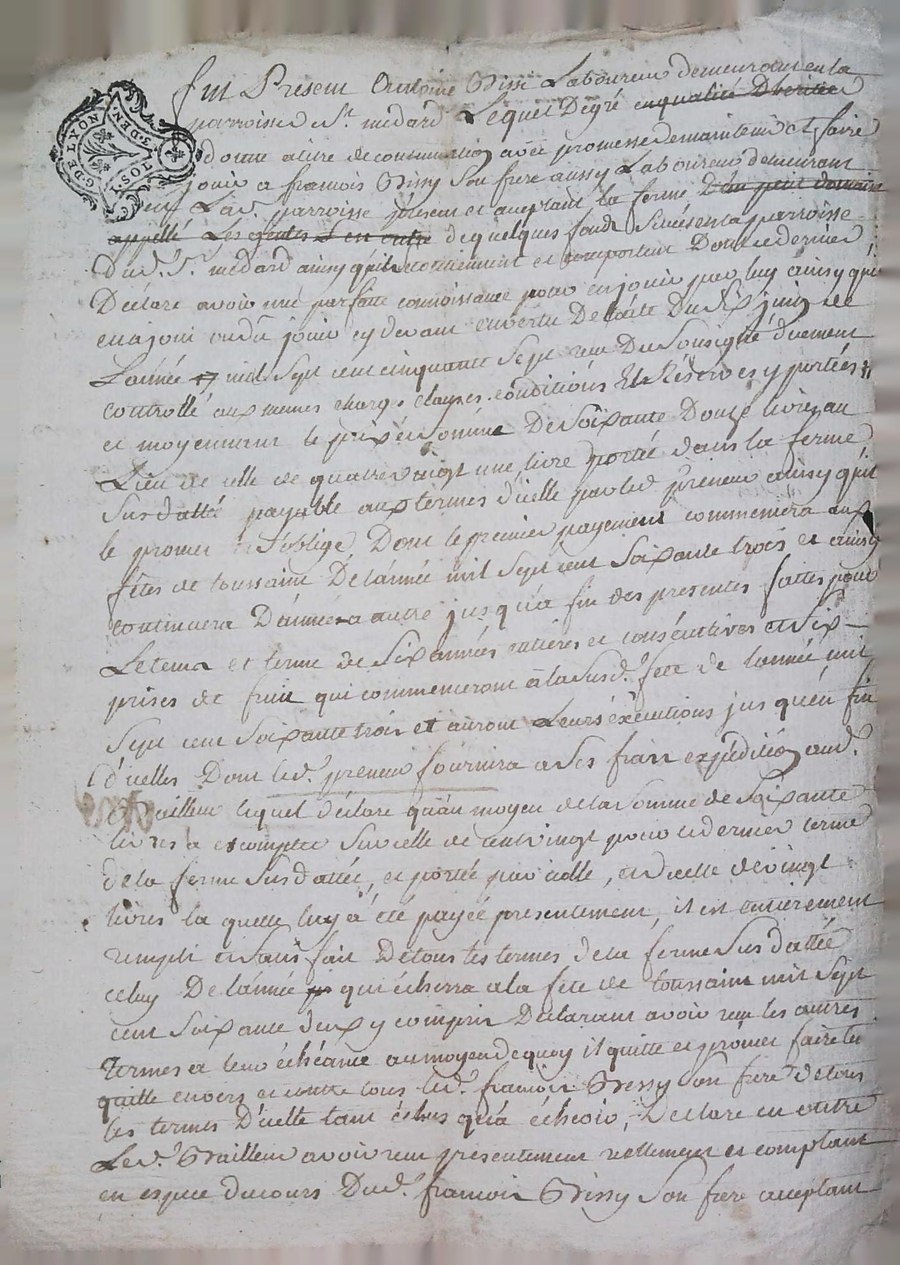 G. DE LYON
3. DEN.
1 SOL
fut Present Antoine Bissy Laboureur demeurant en la
parroisse St. medard Lequel De gré en qualité D'heritier
donne a titre de continuation avec promesse de maintenir et faire
jouir a francois Bissy Son frere aussy Laboureur demeurant
en Lad. parroisse present et acceptant la ferme D'un petit domaine
appellé Les en outre de quelques fonds Situés en la parroisse
Dud. St. medard ainsy qu'ils contiennent et comportent Dont ce dernier
Declare avoir une parfaite connoissance pour en jouir par luy ainsy qu'il
en a joui ou dû jouir cy devant en vertu De l'acte Du Six juin de
L'année mil Sept cent cinquante Sept reçu Du Sousigné duement
controllé aux memes charges clauses conditions Et Réserves y portées
et moyennant le prix et Somme De Soixante Douze livres au
Lieu de celle de quatre vaingt une livre portée dans la ferme
Susdattée payable aux termes d'icelle par led. preneur ainsy qu'il
le promet et S'oblige, Dont le premier payement commencera aux
fêtes de toussaint De l'année mil Sept cent Soixante trois et ainsy
continuera D'année a autre jusqu'a fin des presentes faittes pour
Le tems et terme de Six années entieres et consécutives et Six
prises de fruit qui commenceront à la Susd. fete de l'année mil
Sept cent Soixante trois et auront Leurs éxécutions jusqu'en fin
d'icelles Dont led. preneur fournira a Ses frais expédition aud.
Bailleur lequel déclare qu'au moyen de la Somme de Soixante
livres a escompter Sur celle de cent vingt pour ce dernier terme
de la ferme Susdattée, et portée par icelle, et celle de vingt
livres la quelle luy à été payée presentement, il est entièrement
rempli et Satisfait De tous les termes de la ferme Susdattée
celuy De l'année qui écherra a la fête de toussaint mil Sept
cent Soixante deux y compris Declarant avoir reçu les autres
termes a leur échéance au moyen de quoy il quitte et promet faire tenir
quitte envers et contre tous led. francois Bissy Son frere de tous
les termes D'icelle tant échus qu'à échoir, Declare en outre
Led. Bailleur avoir reçu presentement réellement et comptant
en espece du cours Dud. francois Bissy Son frere acceptant